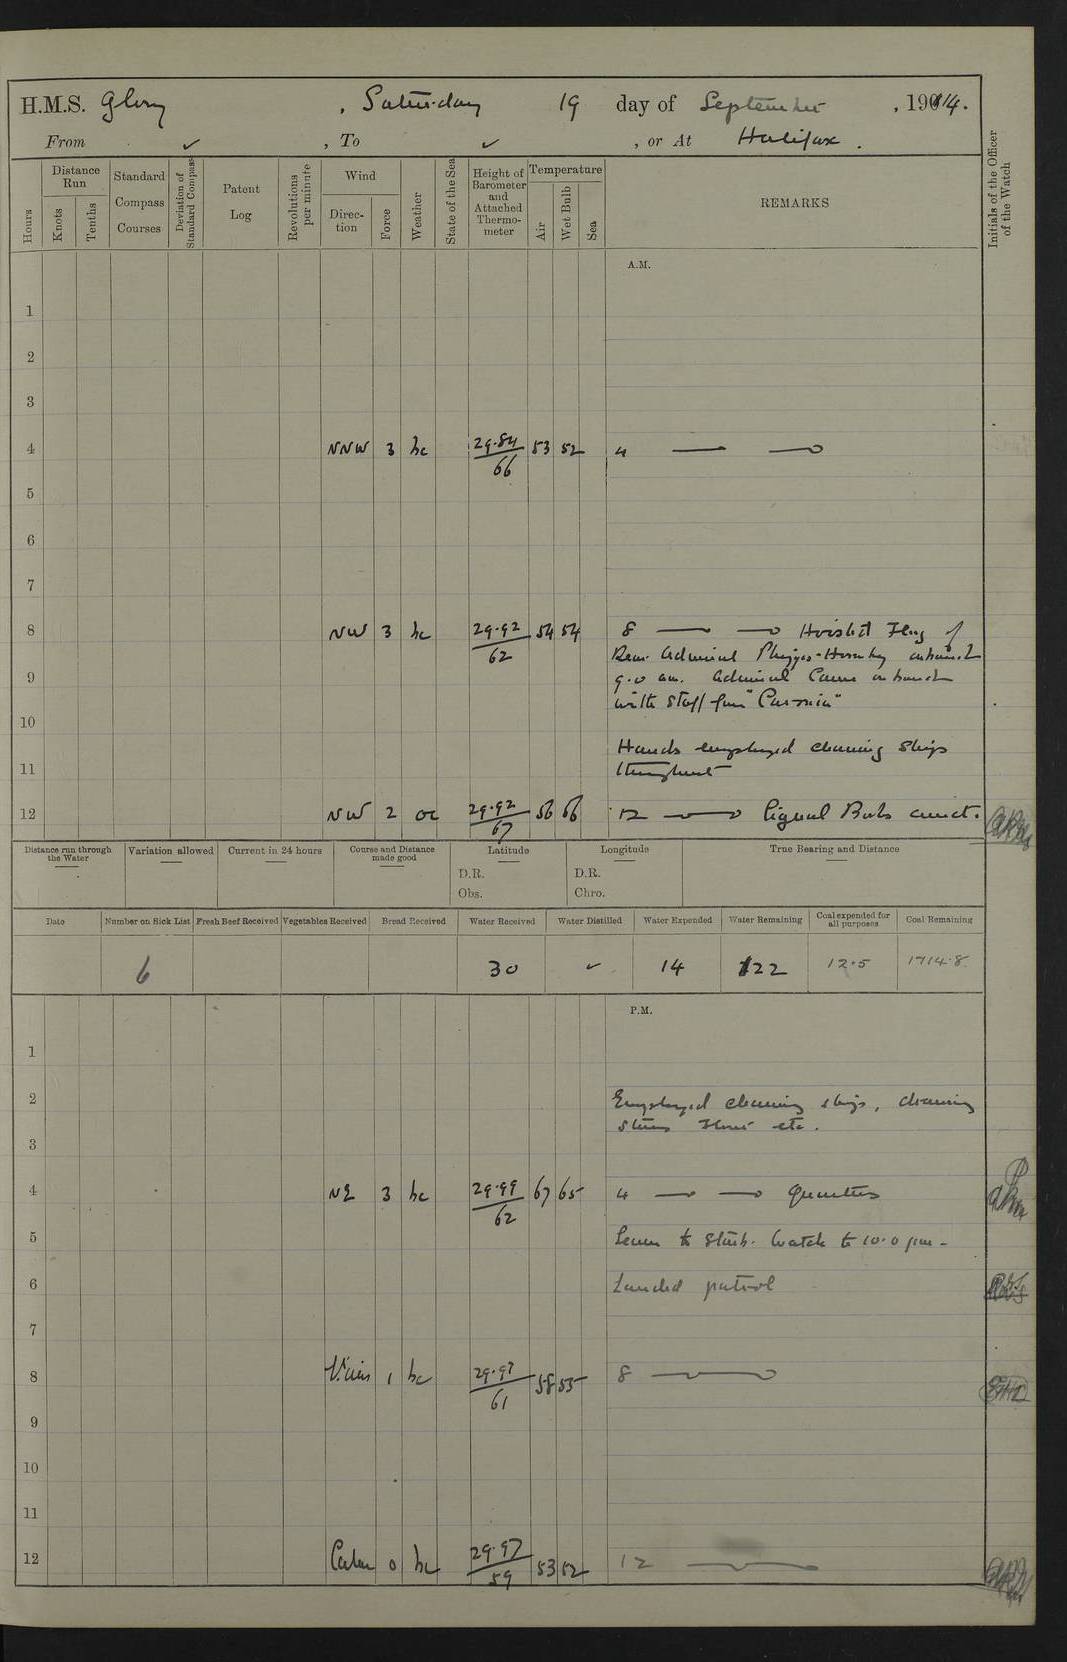 H.M.S. Glory, Saturday 19 day of September, 1914.
From ✓, To ✓, or At Halifax.
Hours
Distance Run
Knots
Tenths
Standard Compass Courses
Deviation of Standard Compass
Patent Log
Revolutions per minute
Wind
Direction
Force
Weather
State of the Sea
Height of Barometer and Attached Thermometer
Temperature
Air
Wet Bulb
Sea
REMARKS
Initials of the Officer of the Watch
A.M.
1
2
3
4 NNW 3 bc 29.84 66 53 52 4
5
6
7
8 NW 3 bc 29.92 62 54 54 8 Hoisted Flag of
Rear Admiral Phipps-Hornby
9 9.0 am. Admiral came on board
with Staff from "Caronia"
10
Hands employed cleaning ship
11 throughout
12 NW 2 oc 29.92 67 56 56 12 Signal Books correct.
Distance run through the Water
Variation allowed
Current in 24 hours
Course and Distance made good
Latitude
D.R.
Obs.
Longitude
D.R.
Chro.
True Bearing and Distance
Date
Number on Sick List
Fresh Beef Received
Vegetables Received
Bread Received
Water Received
Water Distilled
Water Expended
Water Remaining
Coal expended for all purposes
Coal Remaining
6 30 ✓ 14 122 12.5 1714.8
P.M.
1
2 Employed cleaning ship, drawing
stores etc.
3
4 NE 3 bc 29.99 62 67 65 4 Quarters
5 Leave to Starb. Watch to 10.0 pm
6 Landed patrol
7
8 1 bc 29.97 61 58 55 8
9
10
11
12 Calm 0 bc 29.97 59 53 52 12